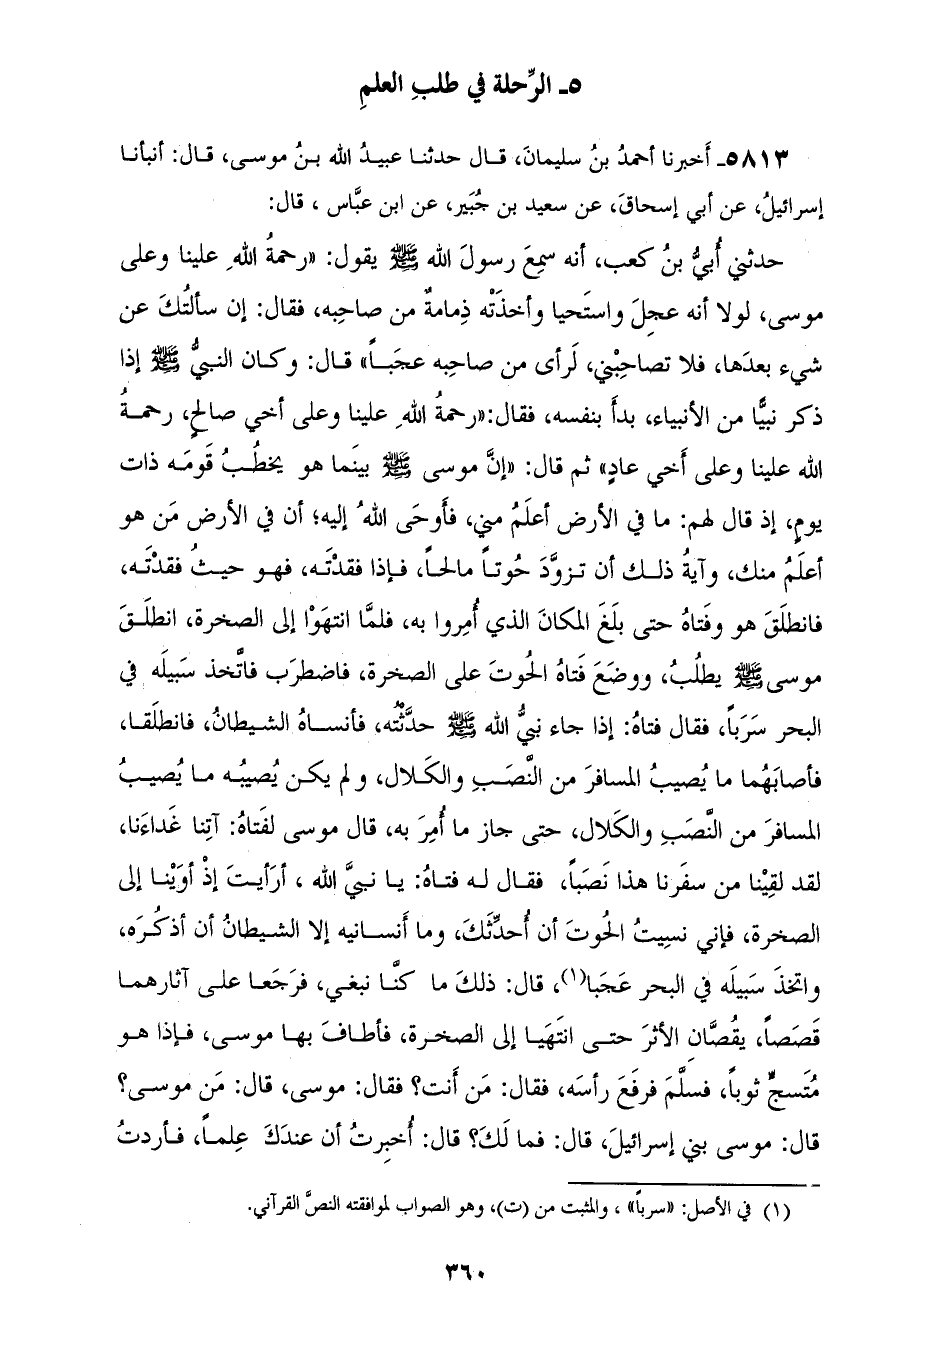 ٥ـ الرِّحلة في طلبِ العلمِ
٥٨١٣ـ أخبرنا أحمدُ بنُ سليمانَ، قال حدثنا عبيدُ الله بنُ موسى، قال: أنبأنا
إسرائيلُ، عن أبي إسحاقَ، عن سعيد بن جُبَير، عن ابن عبَّاس ، قال:
حدثني أُبيُّ بنُ كعب، أنه سمِعَ رسولَ الله ﷺ يقول: «رحمةُ اللهِ علينا وعلى
موسى، لولا أنه عجِلَ واستَحيا وأخذَتْه ذِمامةٌ من صاحبِه، فقال: إن سألتُكَ عن
شيء بعدَها، فلا تصاحِبْني، لَرأى من صاحبِه عجَباً» قال: وكان النبيُّ ﷺ إذا
ذكر نبيًّا من الأنبياء، بدأَ بنفسه، فقال:«رحمةُ اللهِ علينا وعلى أخي صالحٍ، رحمةُ
الله علينا وعلى أخي عادٍ» ثم قال: «إنَّ موسى ﷺ بينَما هو يخطُبُ قَومَه ذات
يومٍ، إذ قال لهم: ما في الأرض أعلَمُ مني، فأَوحَى اللهُ إليه؛ أن في الأرض مَن هو
أعلَمُ منك، وآيةُ ذلك أن تزوَّدَ حُوتاً مالحاً، فإذا فقدْتَه، فهو حيثُ فقدْتَه،
فانطلَقَ هو وفَتاهُ حتى بلَغَ المكانَ الذي أُمِروا به، فلمَّا انتهَوْا إلى الصخرة، انطلَقَ
موسى ﷺ يطلُبُ، ووضَعَ فَتاهُ الحُوتَ على الصخرة، فاضطرَب فاتَّخذ سَبيلَه في
البحر سَرَباً، فقال فتاهُ: إذا جاء نبيُّ الله ﷺ حدَّثْتُه، فأنساهُ الشيطانُ، فانطلَقا،
فأصابَهُما ما يُصيبُ المسافرَ من النَّصَبِ والكَلال، و لم يكن يُصيبُه ما يُصيبُ
المسافرَ من النَّصَبِ والكَلال، حتى جاز ما أُمِرَ به، قال موسى لفتَاهُ: آتِنا غَداءَنا،
لقد لقِيْنا من سفَرنا هذا نَصَباً، فقال له فتاهُ: يا نبيَّ الله ، أرأيتَ إذْ أوَيْنا إلى
الصخرة، فإني نسِيتُ الحُوتَ أن أُحدِّثَكَ، وما أَنسانيه إلا الشيطانُ أن أذكُرَه،
واتخذَ سَبيلَه في البحر عَجَبا(١)، قال: ذلكَ ما كنَّا نبغي، فرَجَعا على آثارهما
قَصَصاً، يقُصَّان الأثرَ حتى انتَهَيا إلى الصخرة، فأطافَ بها موسى، فإذا هو
مُتَسجٍّ ثوباً، فسلَّمَ فرفَعَ رأسَه، فقال: مَن أَنت؟ فقال: موسى، قال: مَن موسى؟
قال: موسى بني إسرائيلَ، قال: فما لَكَ؟ قال: أُخبِرتُ أن عندَكَ عِلماً، فأردتُ
(١) في الأصل: «سرباً» ، والمثبت من (ت)، وهو الصواب لموافقته النصَّ القرآني.
٣٦٠